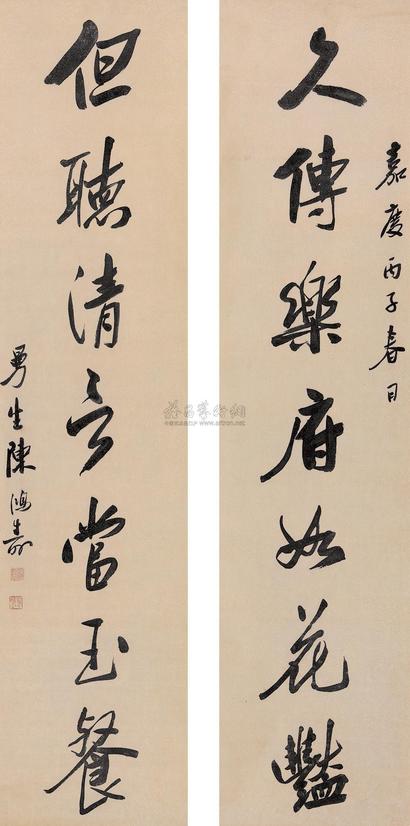 嘉慶丙子春日
久傳樂府如花豔
但聽清言當玉餐
曼生陳鴻壽
雅昌藝術網